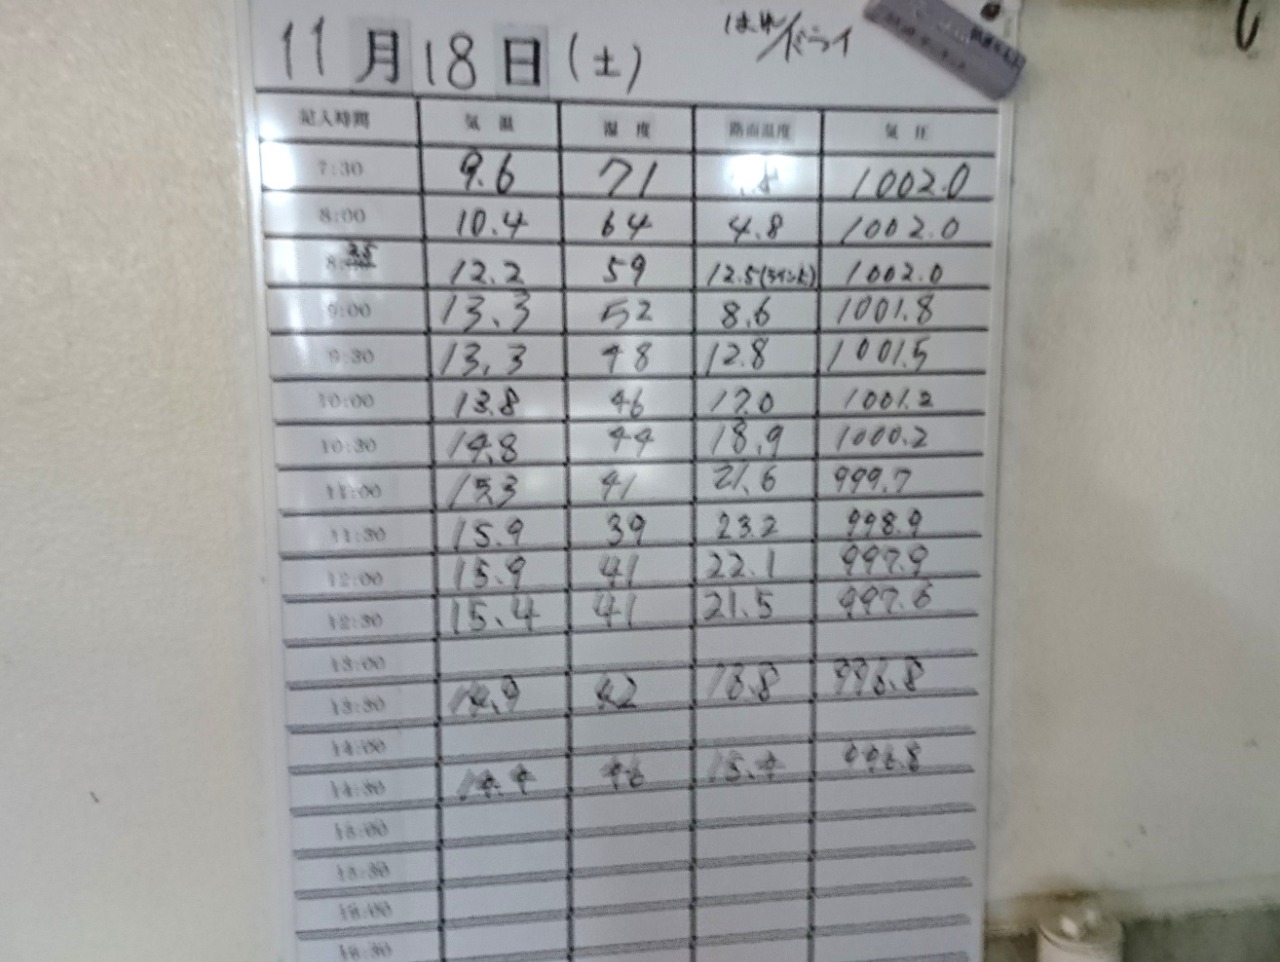 11月18日(土)
はれ/ドライ
記入時間 気温 湿度 路面温度 気圧
7:30 9.6 71 1002.0
8:00 10.4 64 4.8 1002.0
8: 12.2 59 12.5 1002.0
9:00 13.3 52 8.6 1001.8
9:30 13.3 48 12.8 1001.5
10:00 13.8 46 17.0 1001.2
10:30 14.8 44 18.9 1000.2
11:00 15.3 41 21.6 999.7
11:30 15.9 39 23.2 998.9
12:00 15.9 41 22.1 997.9
12:30 15.4 41 21.5 997.6
13:00
13:30 14.9 42 18.8 996.8
14:00
14:30 14.4 46 15.4 996.8
15:00
15:30
16:00
16:30